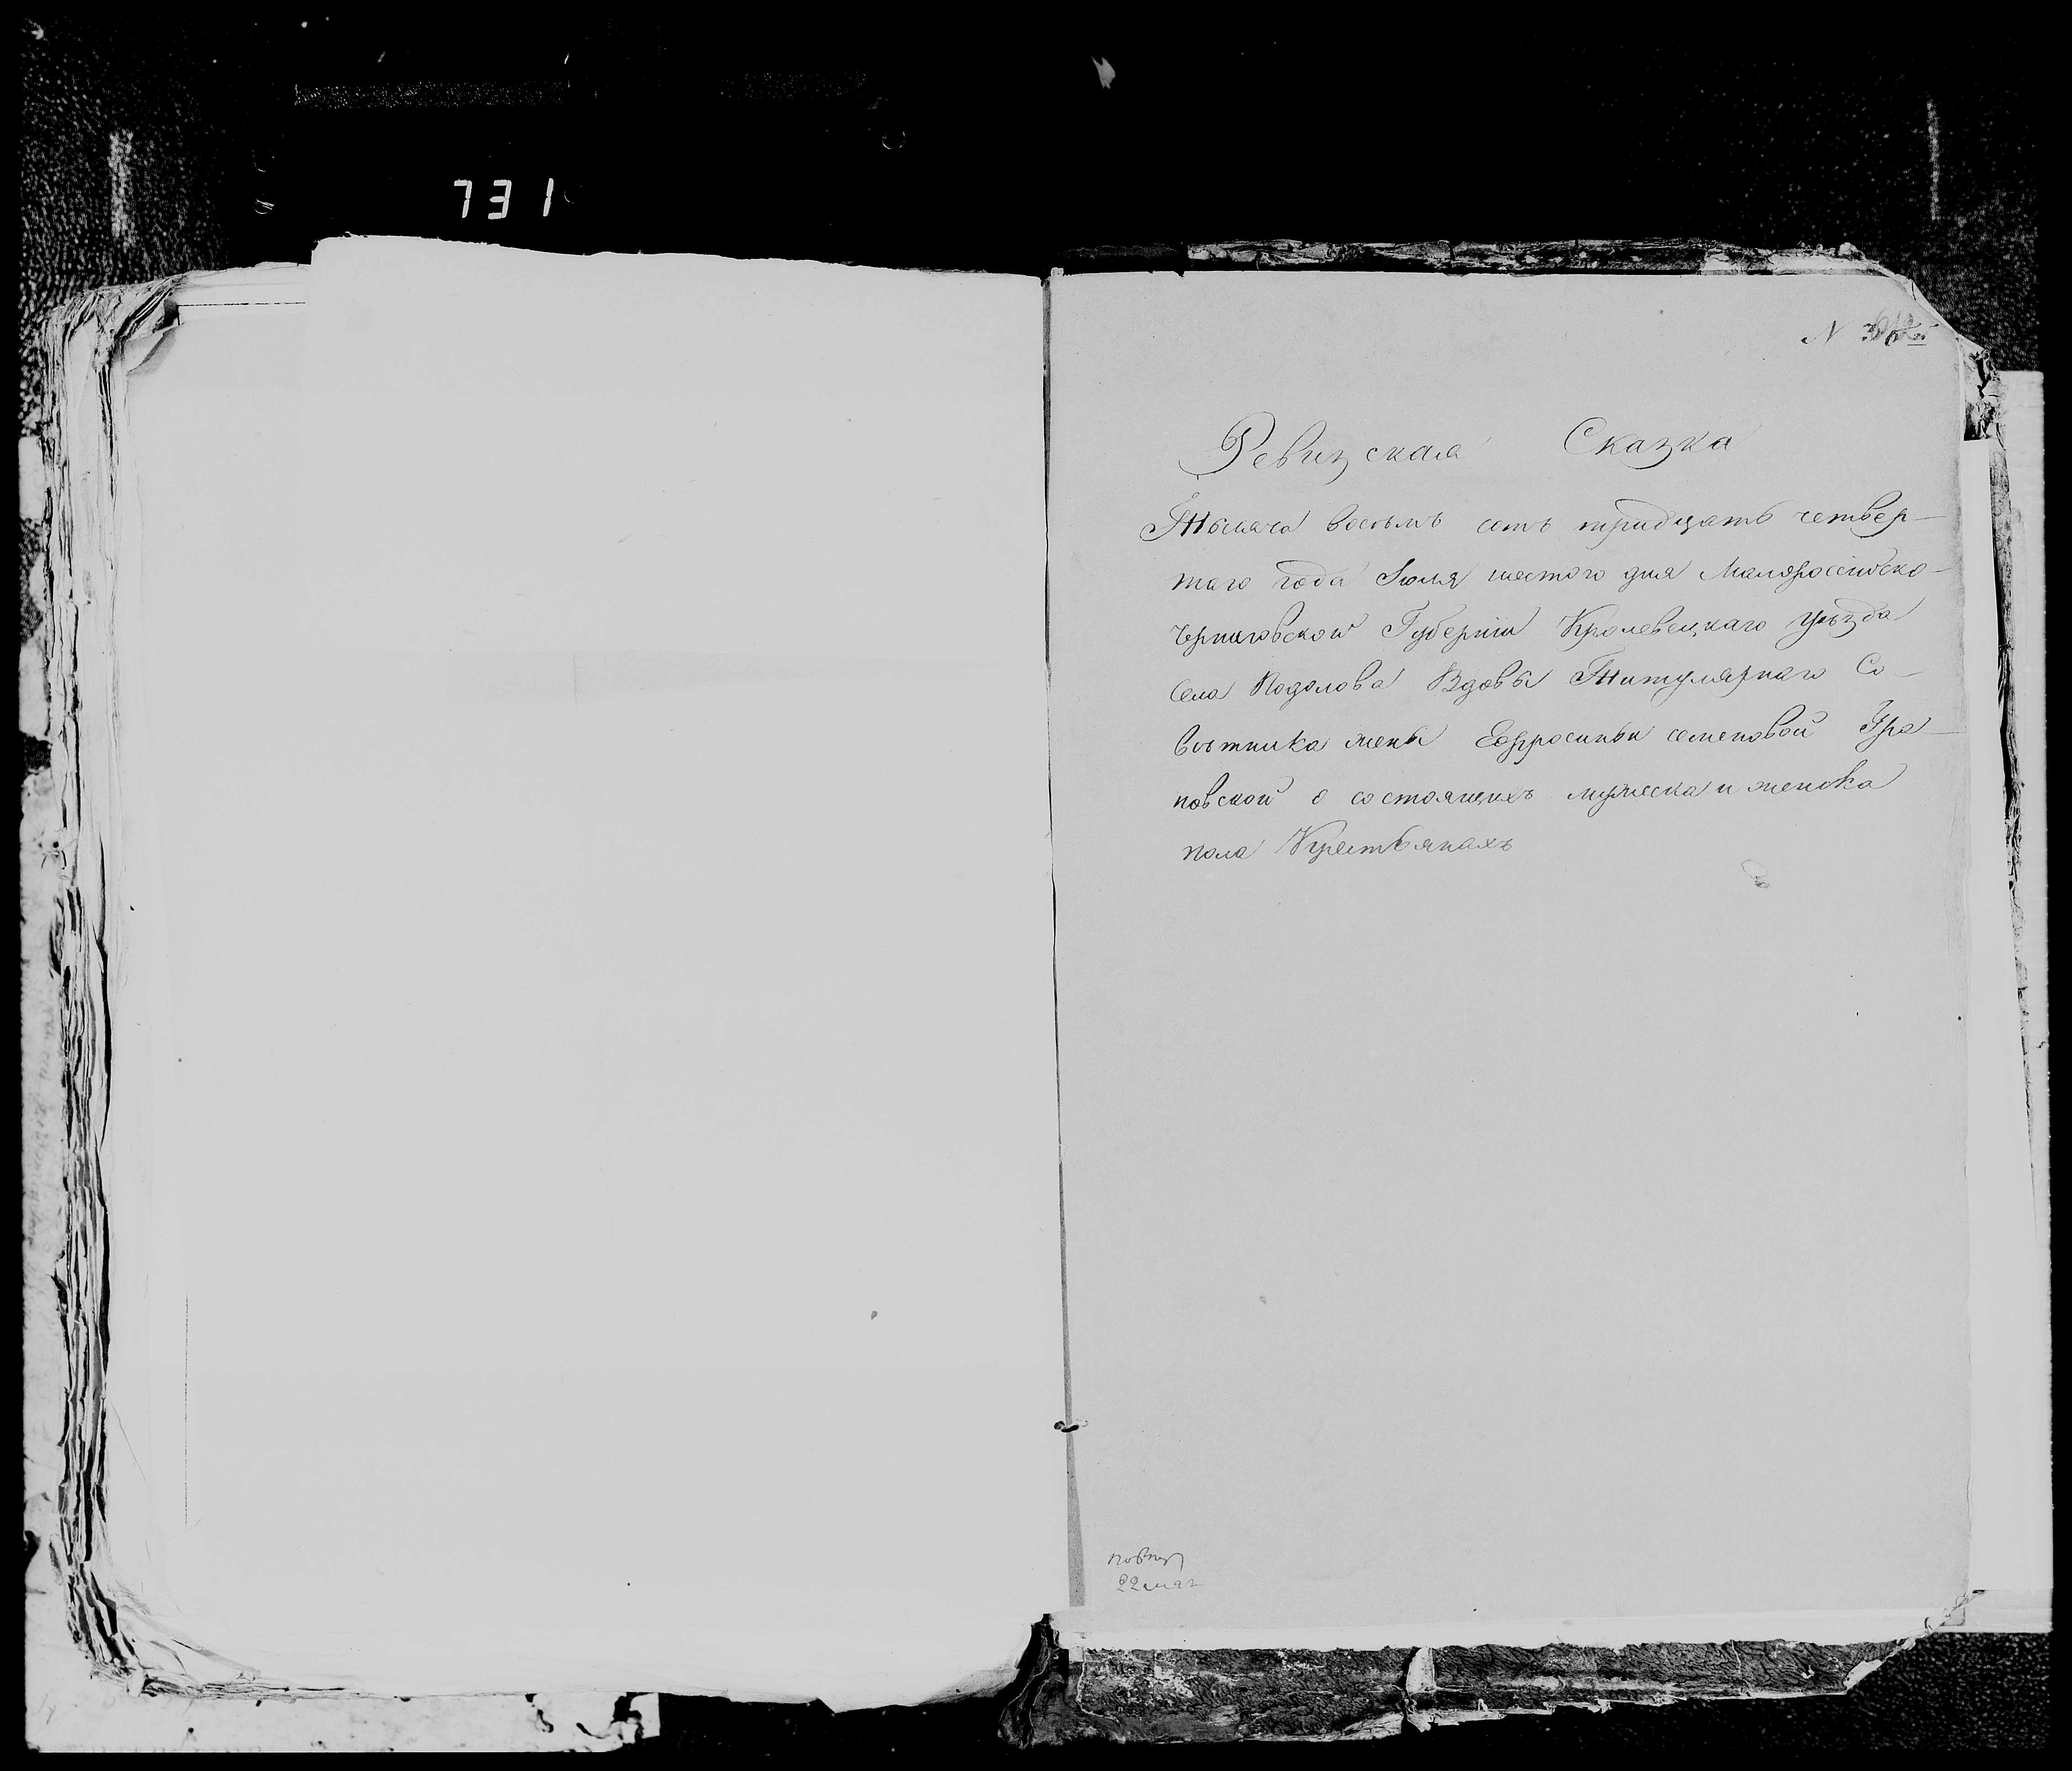 731
N
Ревизская Сказка
Тысяча восѣмъ сотъ тридцать четвер-
таго года Іюля шестого дня Малороссійско-
Черниговской Губерніи Кролевецкаго уѣзда
Села Подолова Вдовы Титулярнаго Со-
вѣтника жены Ефросиньи семеновой
новской о состоящихъ мужеска и женска
пола Крестьянахъ
22